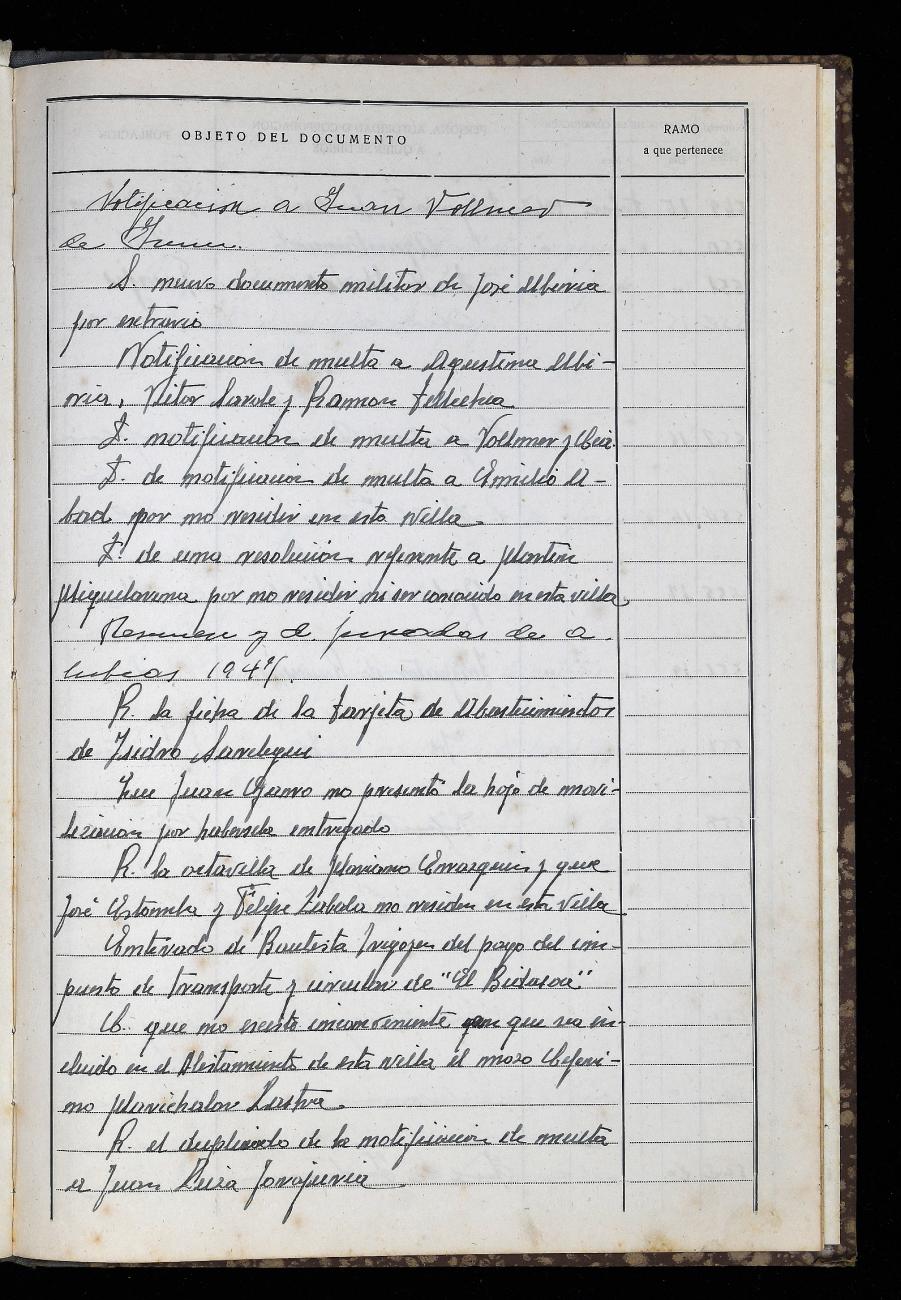 OBJETO DEL DOCUMENTO
RAMO
a que pertenece
Notificación a Juan Vollmer
de Irun.
S. nuevo documento militar de José Ubiria
por extravio
Notificacion de multa a Agustina Ubi-
ria, Vitor Sarole y Ramon Tellechea
D. notificacion de multa a Vollmer y Cia
D. de notificacion de multa a Emilio A-
bad por no residir en esta villa
D. de una resolucion referente a Martin
Miquelarena por no residir ni ser conocido en esta villa
Resumen y d juradas de a
lubias 1947
R. la ficha de la tarjeta de Abastecimientos
de Isidro Sarelegui
Que Juan Garro no presentó la hoja de movi-
lizacion por haberla entregado
R. la octavilla de Mariano Errasquin y que
José Estomba y Felipe Zabala no residen en esta villa
Enterado de Bautista Irigoyen del pago del im-
puesto de transporte y circular de "El Bidasoa"
C. que no existe inconveniente que sea in-
cluido en el Alistamiento de esta villa el mozo Ceferi-
no Marichalar Lastra
R. el duplicado de la notificacion de multa
a Juan Luisa